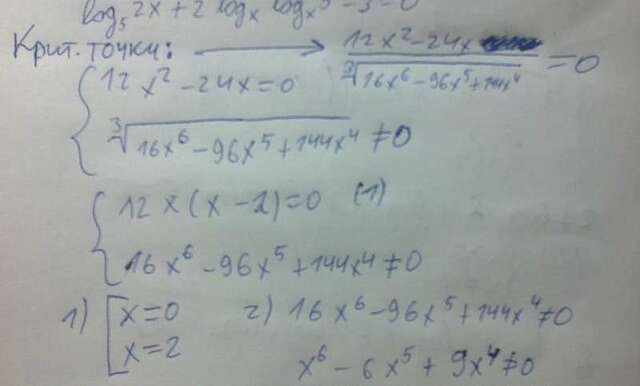 log₅ 2x + 2 logₓ
Крит. точки: → (12x² - 24x)/∛(16x⁶ - 96x⁵ + 144x⁴) = 0
{ 12x² - 24x = 0
∛(16x⁶ - 96x⁵ + 144x⁴) ≠ 0
{ 12x(x - 2) = 0 (1)
16x⁶ - 96x⁵ + 144x⁴ ≠ 0
1) [ x = 0 2) 16x⁶ - 96x⁵ + 144x⁴ ≠ 0
x = 2 x⁶ - 6x⁵ + 9x⁴ ≠ 0